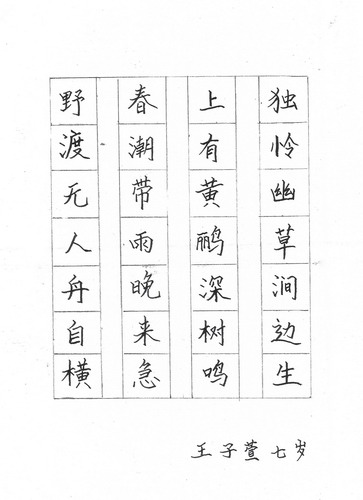 独怜幽草涧边生
上有黄鹂深树鸣
春潮带雨晚来急
野渡无人舟自横
王子萱七岁